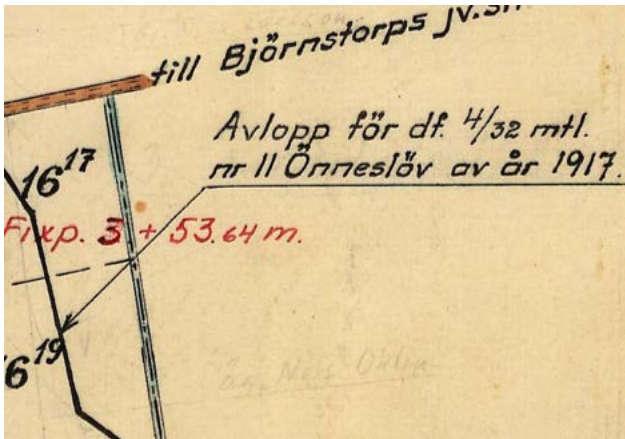 till Björnstorps jv.
Avlopp för df. 4/32 mtl.
nr 11 Önneslöv av år 1917.
16 17
Fixp. 3 + 53.64 m.
16 19